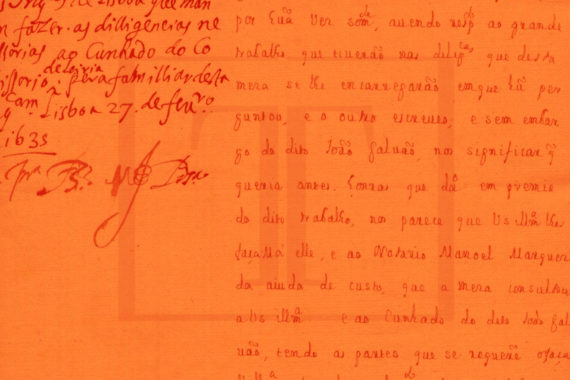 de Lisboa que man
n fazer as dilligencias ne
ssórias ao Cunhado do Co
missorio de Loivia pera familliar desta
Lisboa 27. de feuro.
1635
por Euã Ver somte, auendo respto ao grande
trabalho que tiuerão nas deligas que desta
mera se lhe encarregarão em que hã per
guntou, e o outro escreueo, e sem embar
go do dito João Galuão, nos significar q̃
queria antes honras que dão em premio
do dito trabalho, nos parece que Vs Illma
faça M. a elle, e ao Notario Manoel Marquez
da aiuda de custo, que a mera consultou
a Vs Illma e ao Cunhado do dito João Gal
uão, tendo as partes que se requere, o faça